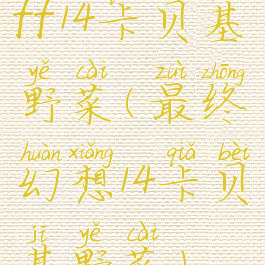 ff14卡贝基
yě cài zuì zhōng
野菜(最终
huàn xiǎng qiǎ bèi
幻想14卡贝
jī yě cài
基野菜)